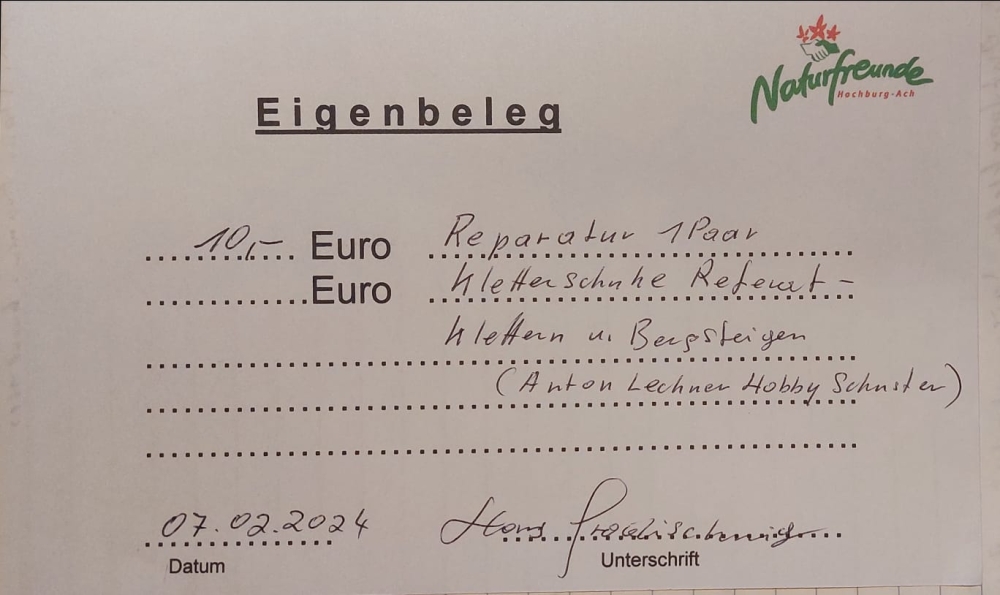 Naturfreunde
Hochburg-Ach
Eigenbeleg
10,- Euro Reparatur 1 Paar
Euro Kletterschuhe Referat-
Klettern u. Bergsteigen
(Anton Lechner Hobby Schuster)
07.02.2024 Hans
Datum Unterschrift